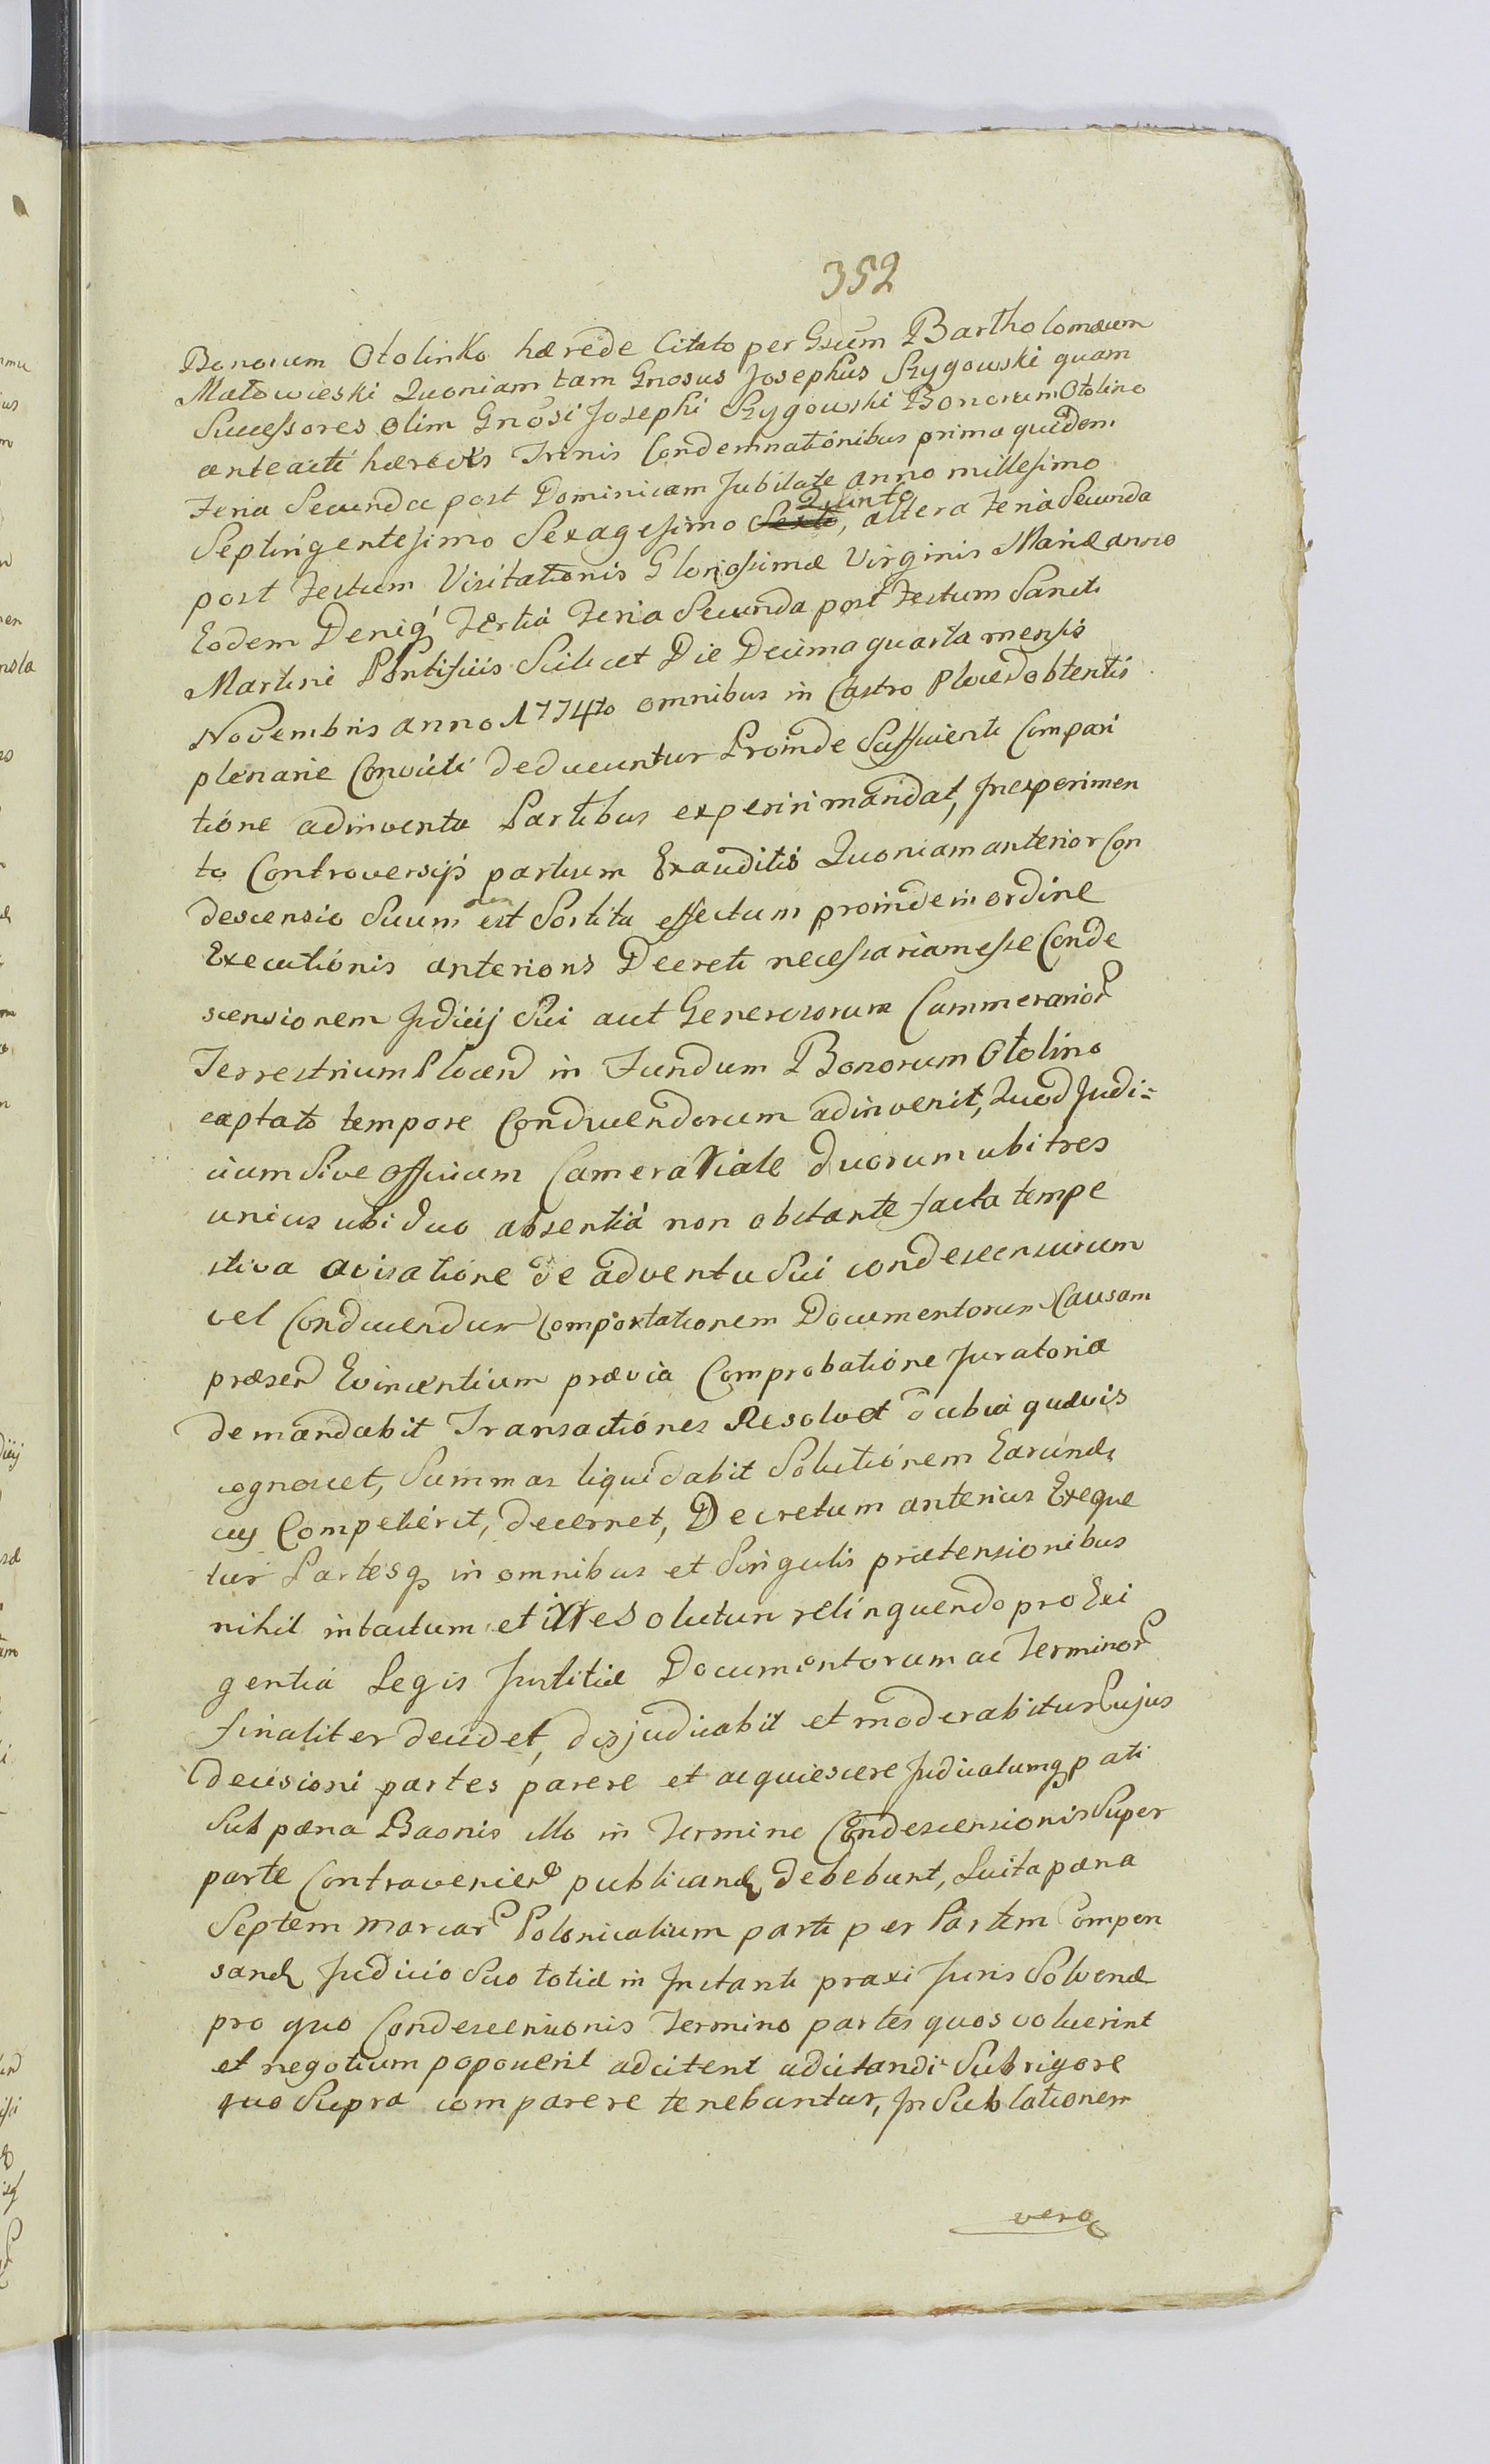 352
Bonorum Otolinko hærede Citato per Gsum Bartholomæum
Małowieski Quoniam tam Gnosus Josephus Szygowski quam
Successores olim Gnosi Josephi Szygowski Bonorum Otolino
anteacti hæredis Trinis Condemnationibus prima quidem
Feria Secunda post Dominicam Jubilate anno millesimo
Septingentesimo Sexagesimo Quinto, altera Feria Secunda
post Festum Visitationis Gloriossimæ Virginis Mariæ anno
Eodem Deniq Tertia Feria Secunda post Festum Sancti
Martini Pontificis Scilicet Die Decima quarta mensis
Novembris anno 1774to omnibus in Castro Plocen obtentis
plenarie Convicti deducuntur Proinde Sufficienti Compari
tione adinventa Partibus experiri mandat, In experimen
to Controversijs partium Exauditis Quoniam anterior Con
descensio Suum non est Sortita effectum proinde in ordine
Executionis anterioris Decreti necessariam esse Conde
scensionem Judicij Sui aut Generosorum Cammerarior
Terrestrium Plocen in Fundum Bonorum Otolino
captato tempore Conducendorum adinvenit, Quod Judi=
cium Sive Officium Camerariale duorum ubi tres
unius ubi duo absentiâ non obstante facta tempe
stiva avisatione de adventu Sui condescensurum
vel Conducendum Comportationem Documentorum Causam
præsen Evincentium prævia Comprobatione Juratoria
demandabit Transactiones Resolvet dubia quævis
cognoscet, Summas liquidabit Solutionem Earund
cuj Competierit, decernet, Decretum anterius Exeque
tur Partesq in omnibus et Singulis prætensionibus
nihil intactum et irresolutum relinquendo pro Exi
gentia Legis Justitiæ Documentorum ac Terminor
finaliter decidet, disjudicabit et moderabitur Cujus
decisioni partes parere et acquiescere Judicatumq pati
Sub pæna Baonis illo in Termino Condescensionis Super
parte Contravenien publicand debebunt, Luita pæna
Septem marcar Polonicalium parti per Partem Compen
sand Judicio Suo totid in Instanti praxi Juris Solvend
pro quo Condescensionis Termino partes quos voluerint
et negotium poposcerit adcitent adcitandi Sub rigore
quo Supra comparere tenebuntur, In Sublationem
vero